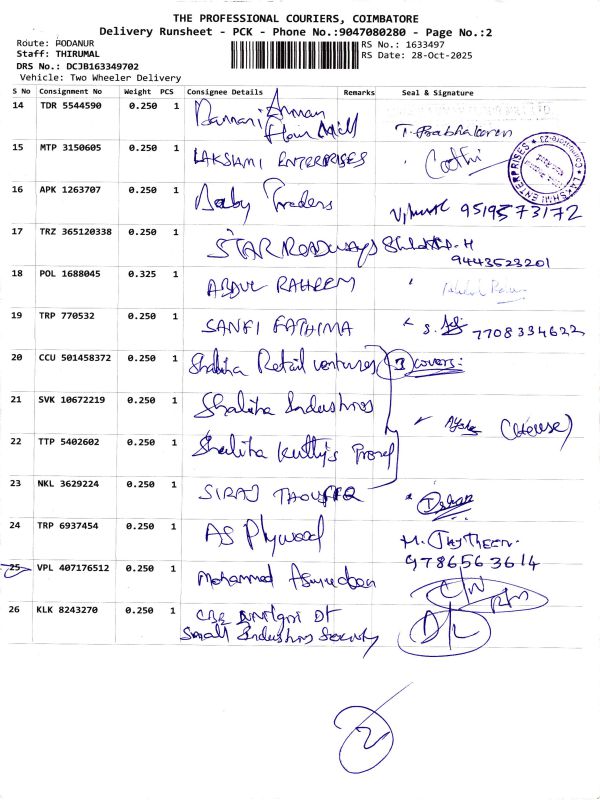 THE PROFESSIONAL COURIERS, COIMBATORE
Delivery Runsheet - PCK - Phone No.:9047080280 - Page No.:2
Route: PODANUR
Staff: THIRUMAL
DRS No.: DCJB163349702
Vehicle: Two Wheeler Delivery
RS No.: 1633497
RS Date: 28-Oct-2025
S No Consignment No Weight PCS Consignee Details Remarks Seal & Signature
14 TDR 5544590 0.250 1 Bannari Amman
Flour Mill T. Prabhakaren
15 MTP 3150605 0.250 1 LAKSHMI ENTERPRISES
LAKSHMI ENTERPRISES
16 APK 1263707 0.250 1 Baby Traders
9519573172
17 TRZ 365120338 0.250 1 STAR ROADways
9443523201
18 POL 1688045 0.325 1 ABDUL RAHEEM
19 TRP 770532 0.250 1 SANFI FATHIMA 7708334622
20 CCU 501458372 0.250 1 Shalika Retail ventures 3 covers:
21 SVK 10672219 0.250 1 Shalika Industries
(House)
22 TTP 5402602 0.250 1 Shalika Kutty's
23 NKL 3629224 0.250 1 SIRAJ
24 TRP 6937454 0.250 1 AS Plywood
9786563614
25 VPL 407176512 0.250 1 Mohammed
26 KLK 8243270 0.250 1 CBE Dt
Small Industries D/L
2